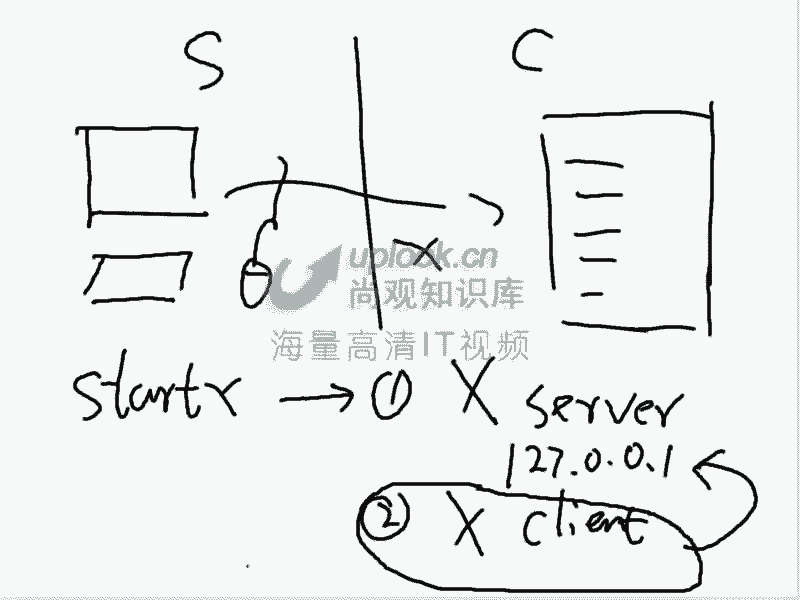 S C
X
uplook.cn
尚观知识库
海量高清IT视频
startx → ① X server
127.0.0.1
② X client